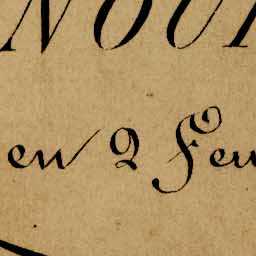 NOU
en 2 Feu